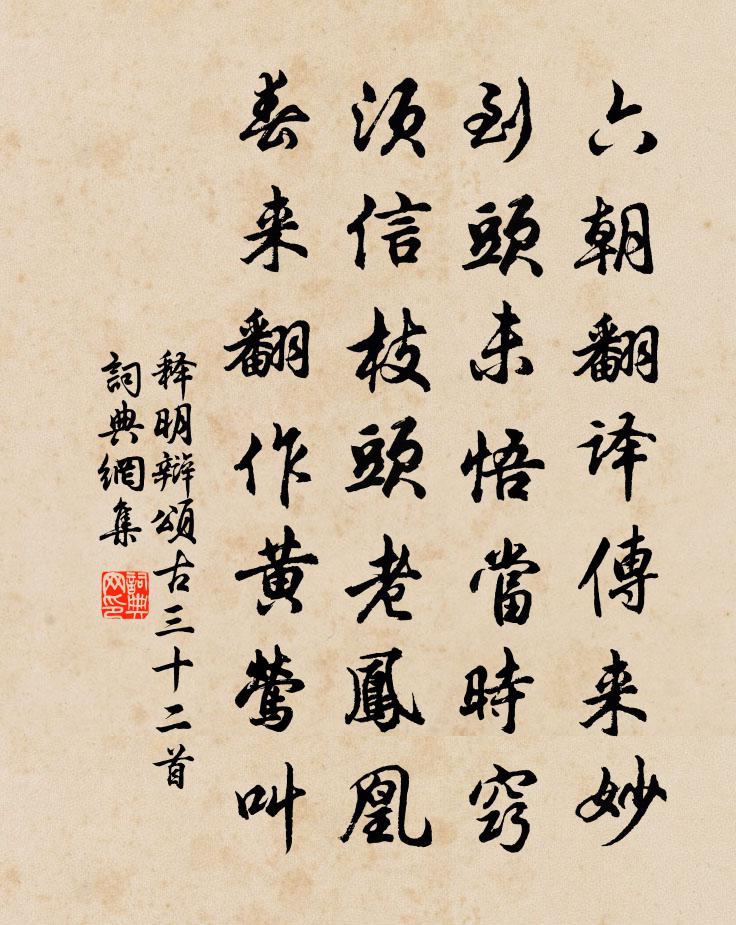 六朝翻译傳来妙
到頭未悟當時竅
須信枝頭老鳳凰
春来翻作黄鶯叫
释明辯頌古三十二首
詞典網集
詞典网印